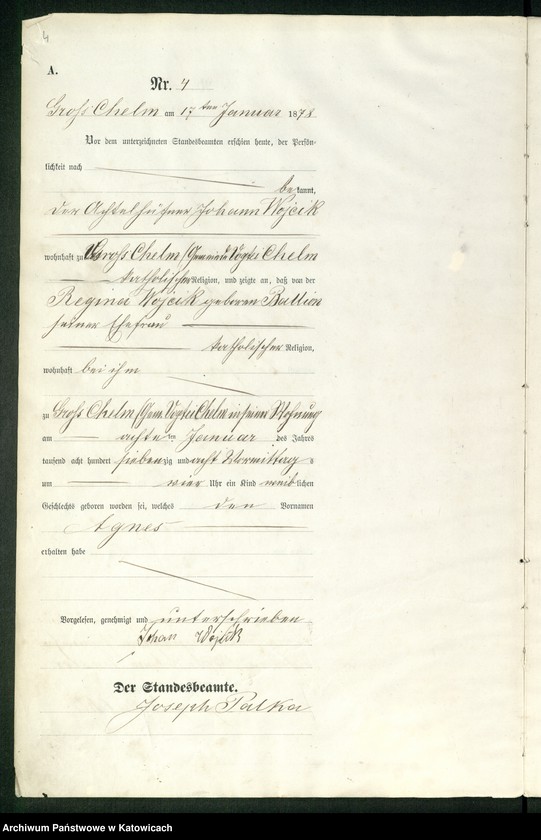 4
A.
Nr. 4
Gross Chelm am 17ten Januar 1878
Vor dem unterzeichneten Standesbeamten erschien heute, der Persön-
lichkeit nach
bekannt,
der Achtelhüfner Johann Wojcik
wohnhaft zu Gross Chelm /Gemeinde Vogtei Chelm
katholischer Religion, und zeigte an, daß von der
Regina Wojcik geboren
seiner Ehefrau
katholischer Religion,
wohnhaft bei ihm
zu Gross Chelm /Gem. Vogtei Chelm in seiner Wohnung
am achten Januar des Jahres
tausend acht hundert siebenzig und acht Vormittags
um vier Uhr ein Kind weiblichen
Geschlechts geboren worden sei, welches den Vornamen
Agnes
erhalten habe
Vorgelesen, genehmigt und unterschrieben
Johan Wojcik
Der Standesbeamte.
Joseph Palka
Archiwum Państwowe w Katowicach